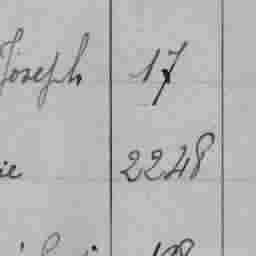 Joseph 17
ie 2248
18